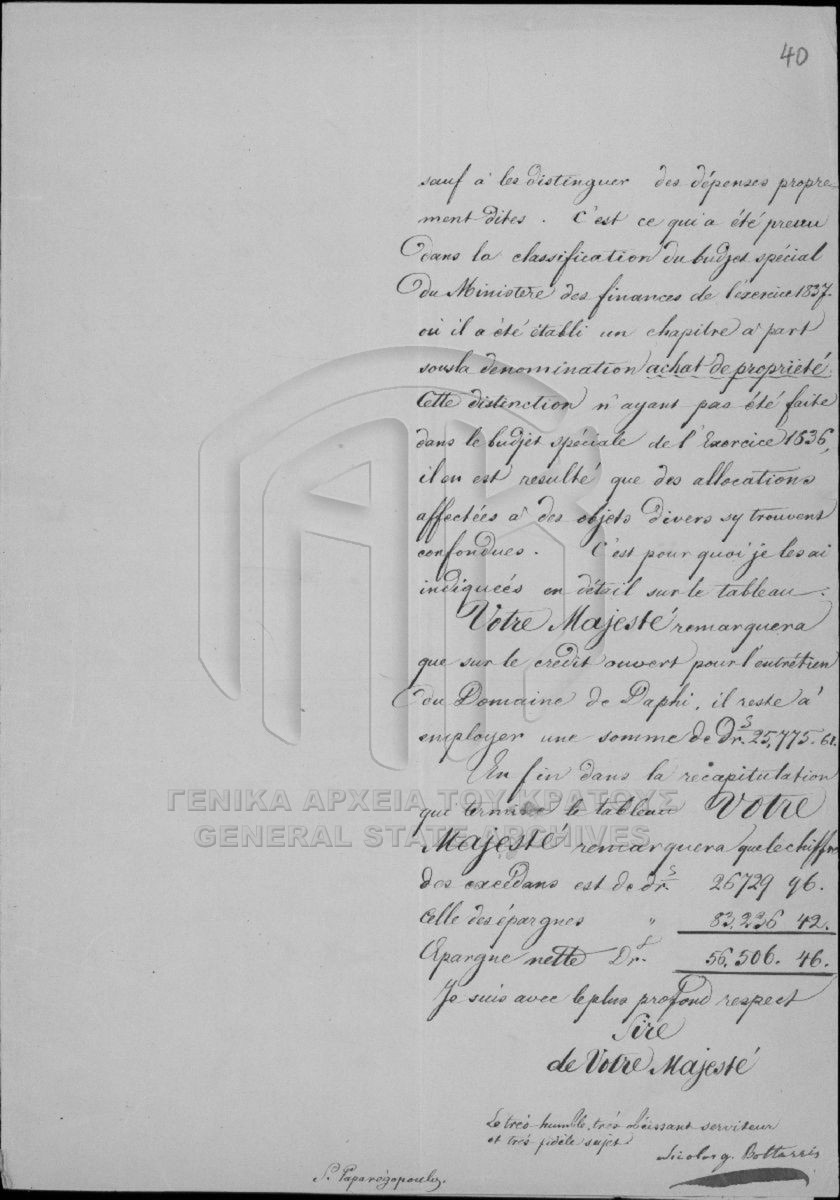 40
sauf à les distinguer des dépenses propre-
ment dites. C'est ce qui a été prévu
dans la classification du budjet spécial
du Ministère des finances de l'éxercice 1837.
où il a été établi un chapitre à part
sous la dénomination achat de propriété.
Cette distinction n'ayant pas été faite
dans le budjet spéciale de l'Exercice 1836,
il en est resulté que des allocations
affectées à des objets divers s'y trouvent
confondues. C'est pour quoi je les ai
indiquées en détail sur le tableau.
Votre Majesté remarquera
que sur le crédit ouvert pour l'entrétien
du Domaine de Daphi, il reste à
employer une somme de Drs. 25,775. 61.
En fin dans la récapitulation
qui termine le tableau Votre
Majesté remarquera que le chiffre
des excédans est de drs. 26729 96.
celle des épargnes " 83.236 42.
Epargne nette Drs. 56.506. 46.
Je suis avec le plus profond respect
Sire
de Votre Majesté
Le très humble, très obéissant serviteur
et très fidèle sujet
Nicolas g. Bottarris
S. Paparégopoulo.
ΓΕΝΙΚΑ ΑΡΧΕΙΑ ΤΟΥ ΚΡΑΤΟΥΣ
GENERAL STATE ARCHIVES